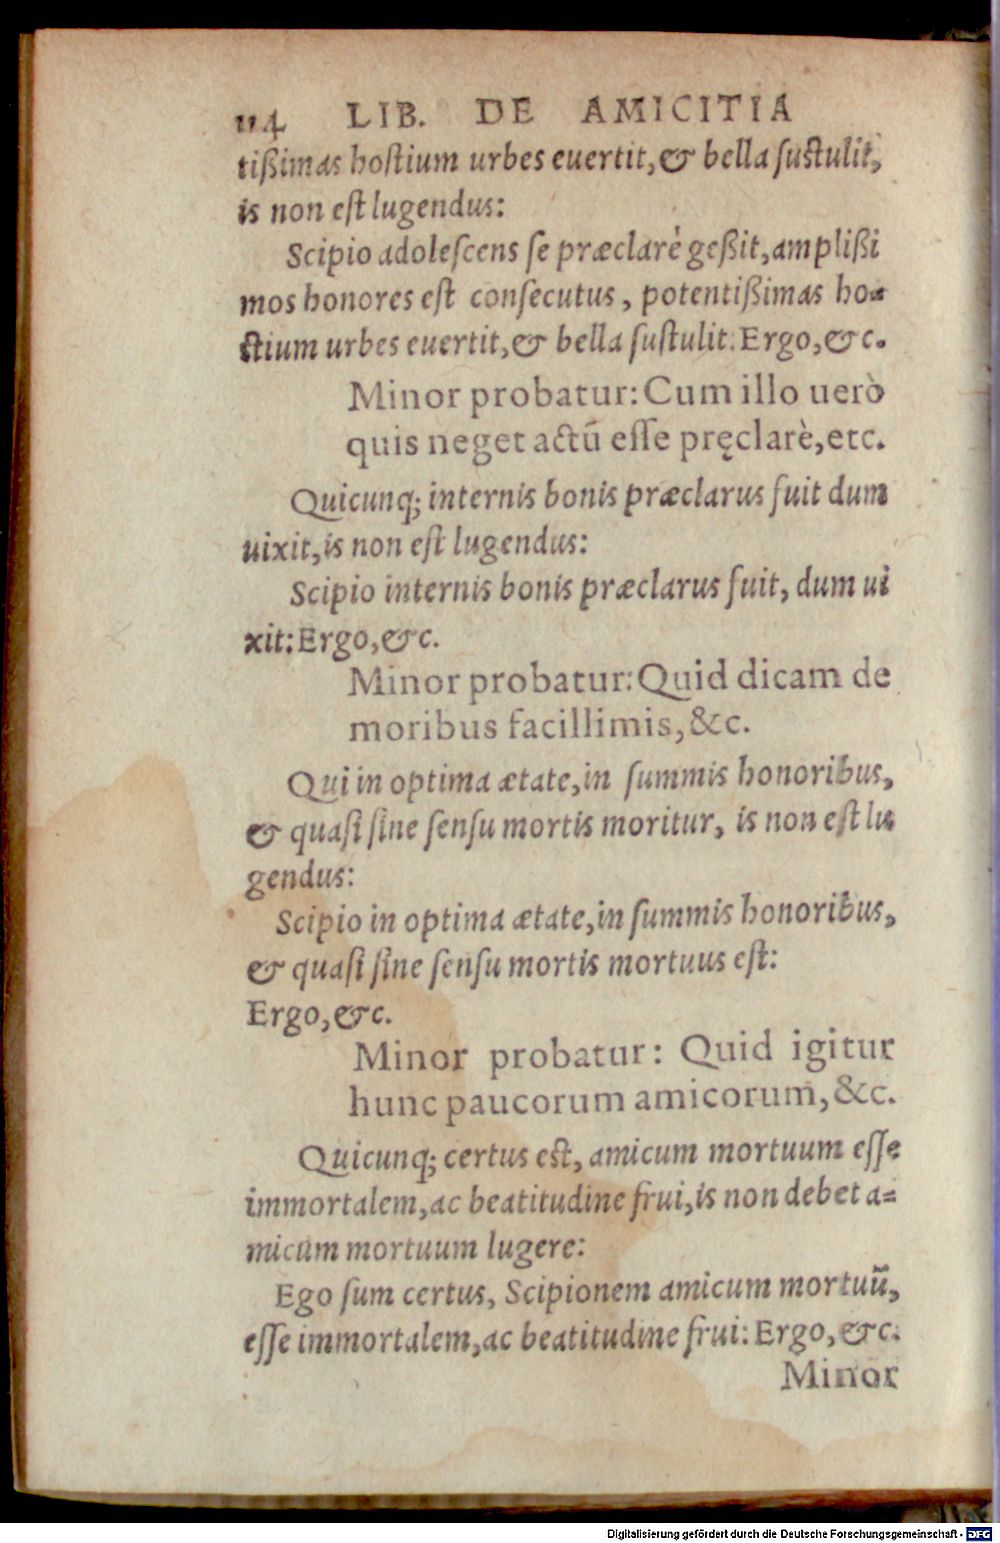 114 LIB. DE AMICITIA
tißimas hoſtium urbes euertit, & bella ſuſtulit,
is non eſt lugendus:
Scipio adoleſcens ſe præclarè geßit, amplißi
mos honores eſt conſecutus, potentißimas ho-
ſtium urbes euertit, & bella ſuſtulit. Ergo, &c.
Minor probatur: Cum illo uerò
quis neget actū eſſe pręclarè, etc.
Quicunq; internis bonis præclarus fuit dum
uixit, is non eſt lugendus:
Scipio internis bonis præclarus fuit, dum ui
xit: Ergo, &c.
Minor probatur: Quid dicam de
moribus facillimis, &c.
Qui in optima ætate, in ſummis honoribus,
& quaſi ſine ſenſu mortis moritur, is non eſt lu
gendus:
Scipio in optima ætate, in ſummis honoribus,
& quaſi ſine ſenſu mortis mortuus eſt:
Ergo, &c.
Minor probatur: Quid igitur
hunc paucorum amicorum, &c.
Quicunq; certus eſt, amicum mortuum eſſe
immortalem, ac beatitudine frui, is non debet a-
micum mortuum lugere:
Ego ſum certus, Scipionem amicum mortuū,
eſſe immortalem, ac beatitudine frui: Ergo, &c.
Minor
Digitalisierung gefördert durch die Deutsche Forschungsgemeinschaft - DFG